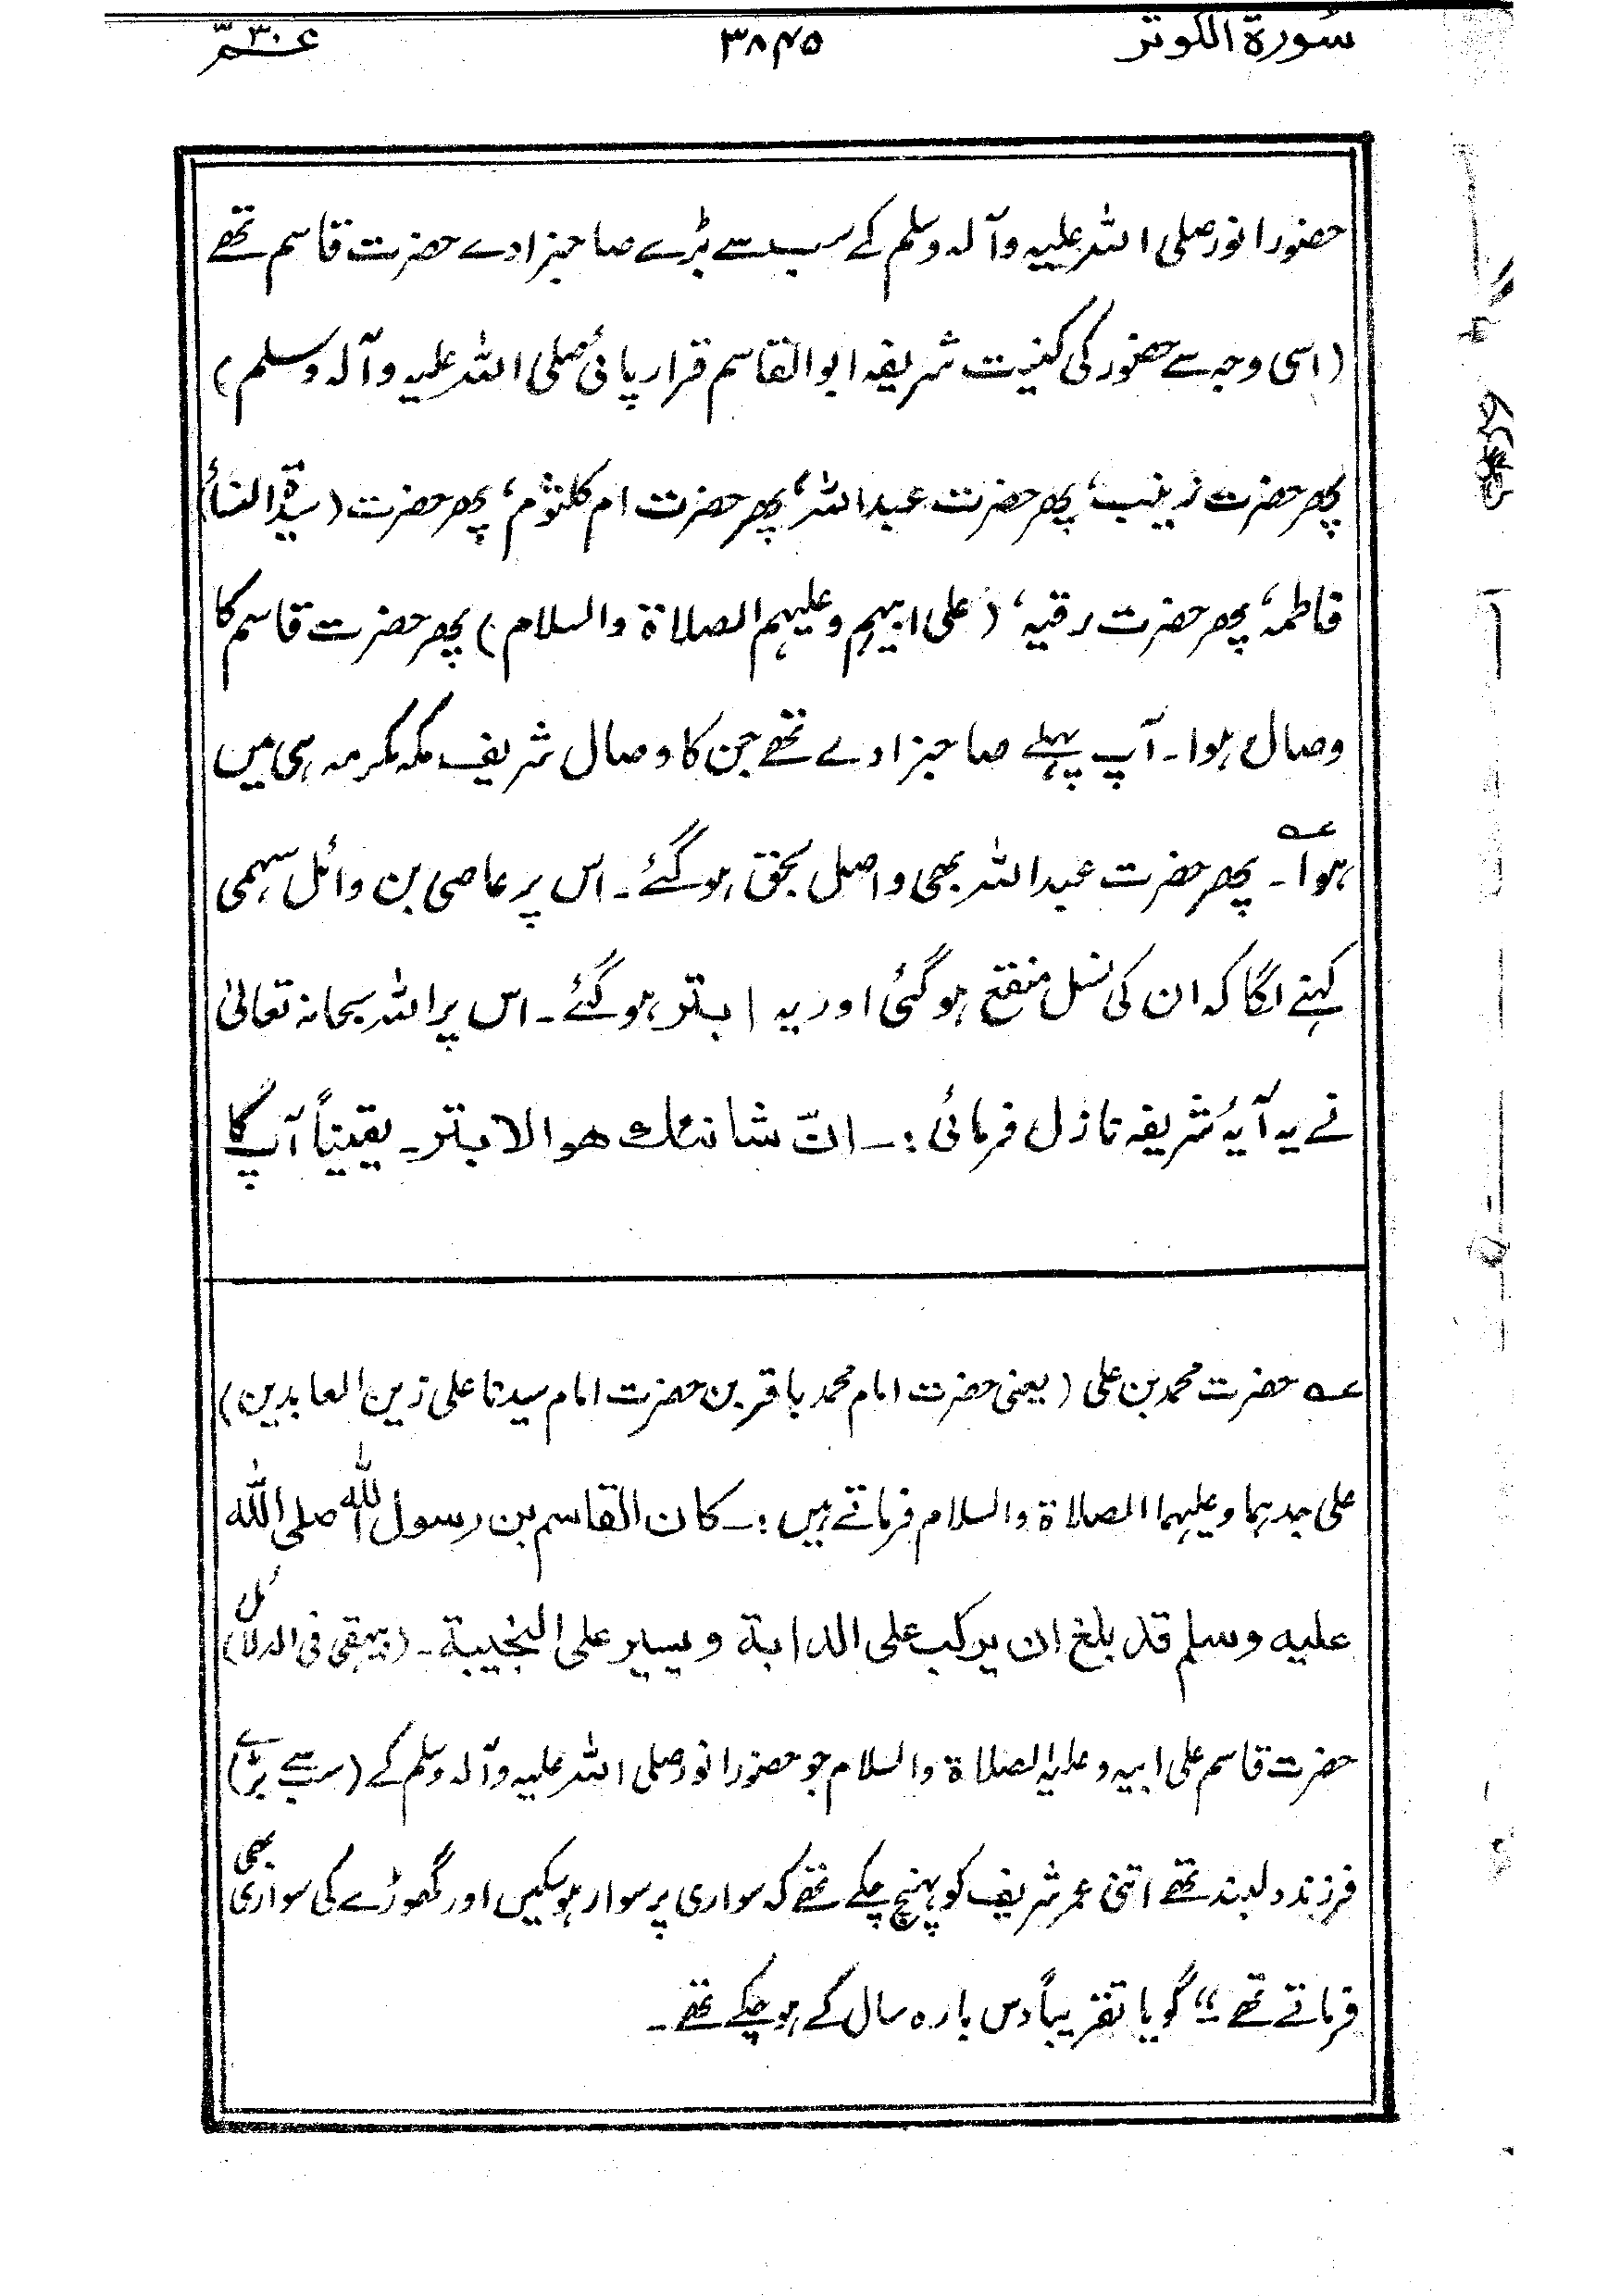 سُورۃ الکوثر ۳۸۴۵ عمّ ۳۰
حضور انور صلی اللہ علیہ وآلہ وسلم کے سب سے بڑے صاحبزادے حضرت قاسم تھے
(اسی وجہ سے حضور کی کنیت شریفہ ابوالقاسم قرار پائی صلی اللہ علیہ وآلہ وسلم)
پھر حضرت زینب، پھر حضرت عبداللہ، پھر حضرت ام کلثوم، پھر حضرت (سیدۃ النسأ)
فاطمہ، پھر حضرت رقیہ، (علی ابیہم وعلیہم الصلاۃ والسلام) پھر حضرت قاسم کا
وصال ہوا۔ آپ پہلے صاحبزادے تھے جن کا وصال شریف مکہ مکرمہ ہی میں
ہوا عہ۔ پھر حضرت عبداللہ بھی واصل بحق ہوگئے۔ اس پر عاصی بن وائل سہمی
کہنے لگا کہ ان کی نسل منقع ہوگئی اور یہ ابتر ہوگئے۔ اس پر اللہ سبحانہ تعالیٰ
نے یہ آیۂ شریفہ نازل فرمائی :۔ انّ شانئك هو الابتر۔ یقیناً آپ کا
عہ حضرت محمد بن علی (یعنی حضرت امام محمد باقر بن حضرت امام سیدنا علی زین العابدین)
علی جدہما وعلیہما الصلاۃ والسلام فرماتے ہیں :۔ کان القاسم بن رسول اللہ صلی اللہ
علیه وسلم قد بلغ ان یرکب علی الدابة ویسیر علی النجیبة۔ (بیہقی فی الدلائل)
حضرت قاسم علی ابیہ وعلیہ الصلاۃ والسلام جو حضور انور صلی اللہ علیہ وآلہ وسلم کے (سب سے بڑے)
فرزند دلبند تھے اتنی عمر شریف کو پہنچ چکے تھے کہ سواری پر سوار ہوسکیں اور گھوڑے کی سواری بھی
فرماتے تھے“ گویا تقریباً دس بارہ سال کے ہوچکے تھے۔